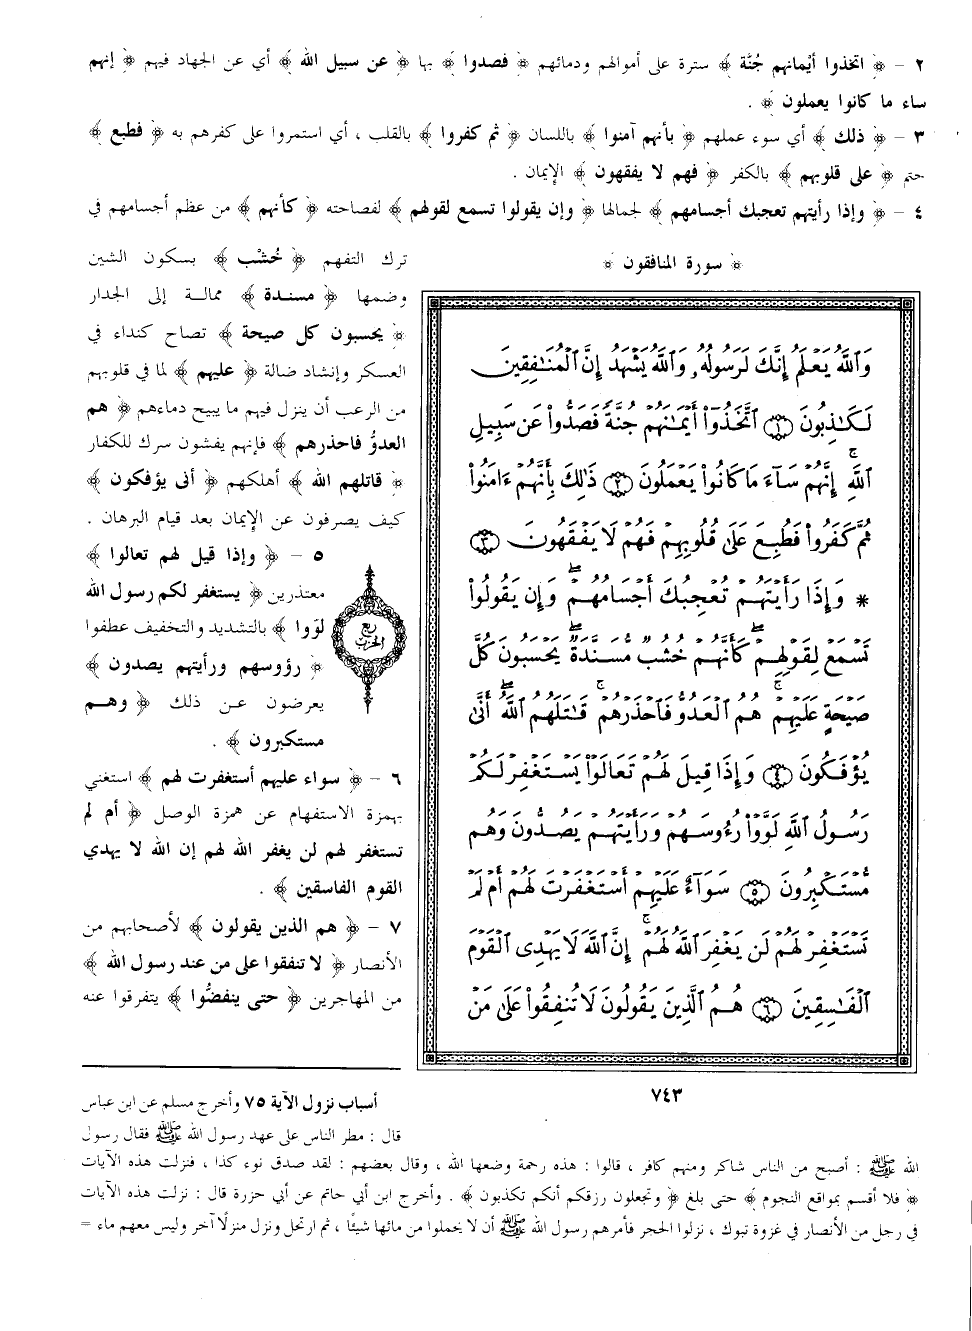 ٢ – ﴿ اتخذوا أيمانهم جُنَّة ﴾ سترة على أموالهم ودمائهم ﴿ فصدوا ﴾ بها ﴿ عن سبيل الله ﴾ أي عن الجهاد فيهم ﴿ إنهم
ساء ما كانوا يعملون ﴾ .
٣ – ﴿ ذلك ﴾ أي سوء عملهم ﴿ بأنهم آمنوا ﴾ باللسان ﴿ ثم كفروا ﴾ بالقلب ، أي استمروا على كفرهم به ﴿ فطبع ﴾
ختم ﴿ على قلوبهم ﴾ بالكفر ﴿ فهم لا يفقهون ﴾ الإيمان .
٤ – ﴿ وإذا رأيتهم تعجبك أجسامهم ﴾ لجمالها ﴿ وإن يقولوا تسمع لقولهم ﴾ لفصاحته ﴿ كأنهم ﴾ من عظم أجسامهم في
﴿ سورة المنافقون ﴾
وَٱللَّهُ يَعْلَمُ إِنَّكَ لَرَسُولُهُۥ وَٱللَّهُ يَشْهَدُ إِنَّ ٱلْمُنَـٰفِقِينَ
لَكَـٰذِبُونَ ١ ٱتَّخَذُوٓا۟ أَيْمَـٰنَهُمْ جُنَّةً فَصَدُّوا۟ عَن سَبِيلِ
ٱللَّهِ ۚ إِنَّهُمْ سَآءَ مَا كَانُوا۟ يَعْمَلُونَ ٢ ذَٰلِكَ بِأَنَّهُمْ ءَامَنُوا۟
ثُمَّ كَفَرُوا۟ فَطُبِعَ عَلَىٰ قُلُوبِهِمْ فَهُمْ لَا يَفْقَهُونَ ٣
* وَإِذَا رَأَيْتَهُمْ تُعْجِبُكَ أَجْسَامُهُمْ ۖ وَإِن يَقُولُوا۟
تَسْمَعْ لِقَوْلِهِمْ ۖ كَأَنَّهُمْ خُشُبٌ مُّسَنَّدَةٌ ۖ يَحْسَبُونَ كُلَّ
صَيْحَةٍ عَلَيْهِمْ ۚ هُمُ ٱلْعَدُوُّ فَٱحْذَرْهُمْ ۚ قَـٰتَلَهُمُ ٱللَّهُ ۖ أَنَّىٰ
يُؤْفَكُونَ ٤ وَإِذَا قِيلَ لَهُمْ تَعَالَوْا۟ يَسْتَغْفِرْ لَكُمْ
رَسُولُ ٱللَّهِ لَوَّوْا۟ رُءُوسَهُمْ وَرَأَيْتَهُمْ يَصُدُّونَ وَهُم
مُّسْتَكْبِرُونَ ٥ سَوَآءٌ عَلَيْهِمْ أَسْتَغْفَرْتَ لَهُمْ أَمْ لَمْ
تَسْتَغْفِرْ لَهُمْ لَن يَغْفِرَ ٱللَّهُ لَهُمْ ۚ إِنَّ ٱللَّهَ لَا يَهْدِى ٱلْقَوْمَ
ٱلْفَـٰسِقِينَ ٦ هُمُ ٱلَّذِينَ يَقُولُونَ لَا تُنفِقُوا۟ عَلَىٰ مَنْ
٧٤٣
ترك التفهم ﴿ خُشْب ﴾ بسكون الشين
وضمها ﴿ مسندة ﴾ ممالة إلى الجدار
﴿ يحسبون كل صيحة ﴾ تصاح كنداء في
العسكر وإنشاد ضالة ﴿ عليهم ﴾ لما في قلوبهم
من الرعب أن ينزل فيهم ما يبيح دماءهم ﴿ هم
العدوُّ فاحذرهم ﴾ فإنهم يفشون سرك للكفار
﴿ قاتلهم الله ﴾ أهلكهم ﴿ أنى يؤفكون ﴾
كيف يصرفون عن الإيمان بعد قيام البرهان .
٥ – ﴿ وإذا قيل لهم تعالوا ﴾
معتذرين ﴿ يستغفر لكم رسول الله
لوّوا ﴾ بالتشديد والتخفيف عطفوا
﴿ رؤوسهم ورأيتهم يصدون ﴾
يعرضون عن ذلك ﴿ وهم
مستكبرون ﴾ .
ربع
الحزب
٦ – ﴿ سواء عليهم أستغفرت لهم ﴾ استغني
بهمزة الاستفهام عن همزة الوصل ﴿ أم لم
تستغفر لهم لن يغفر الله لهم إن الله لا يهدي
القوم الفاسقين ﴾ .
٧ – ﴿ هم الذين يقولون ﴾ لأصحابهم من
الأنصار ﴿ لا تنفقوا على من عند رسول الله ﴾
من المهاجرين ﴿ حتى ينفضُّوا ﴾ يتفرقوا عنه
أسباب نزول الآية ٧٥ وأخرج مسلم عن ابن عباس
قال : مطر الناس على عهد رسول الله ﷺ فقال رسول
الله ﷺ : أصبح من الناس شاكر ومنهم كافر ، قالوا : هذه رحمة وضعها الله ، وقال بعضهم : لقد صدق نوء كذا ، فنزلت هذه الآيات
﴿ فلا أقسم بمواقع النجوم ﴾ حتى بلغ ﴿ وتجعلون رزقكم أنكم تكذبون ﴾ . وأخرج ابن أبي حاتم عن أبي حزرة قال : نزلت هذه الآيات
في رجل من الأنصار في غزوة تبوك ، نزلوا الحجر فأمرهم رسول الله ﷺ أن لا يحملوا من مائها شيئًا ، ثم ارتحل ونزل منزلًا آخر وليس معهم ماء =